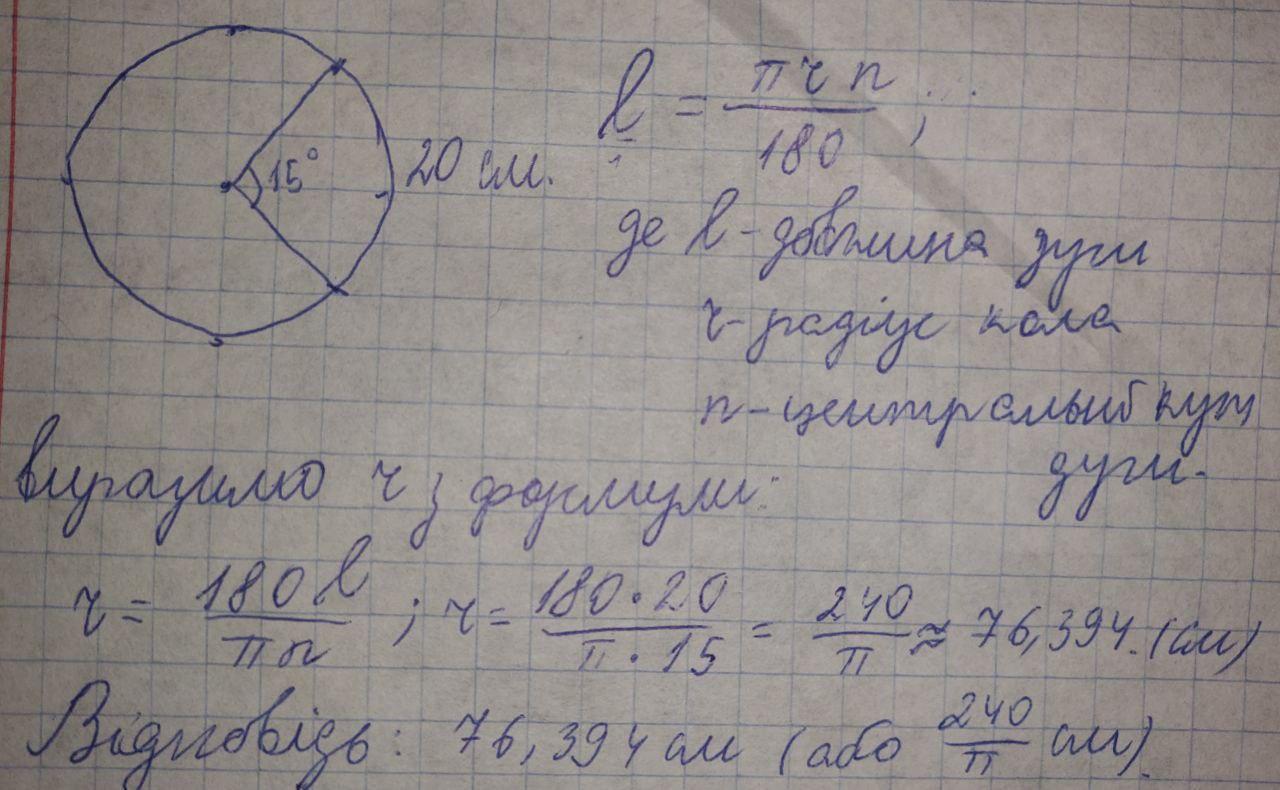 15° 20 см.
l = πrn / 180 ;
де l - довжина дуги
r - радіус кола
n - центральний кут
дуги.
виразимо r з формули:
r = 180 l / πn ; r = 180 · 20 / π · 15 = 240 / π ≈ 76,394 (см)
Відповідь: 76,394 см (або 240 / π см).